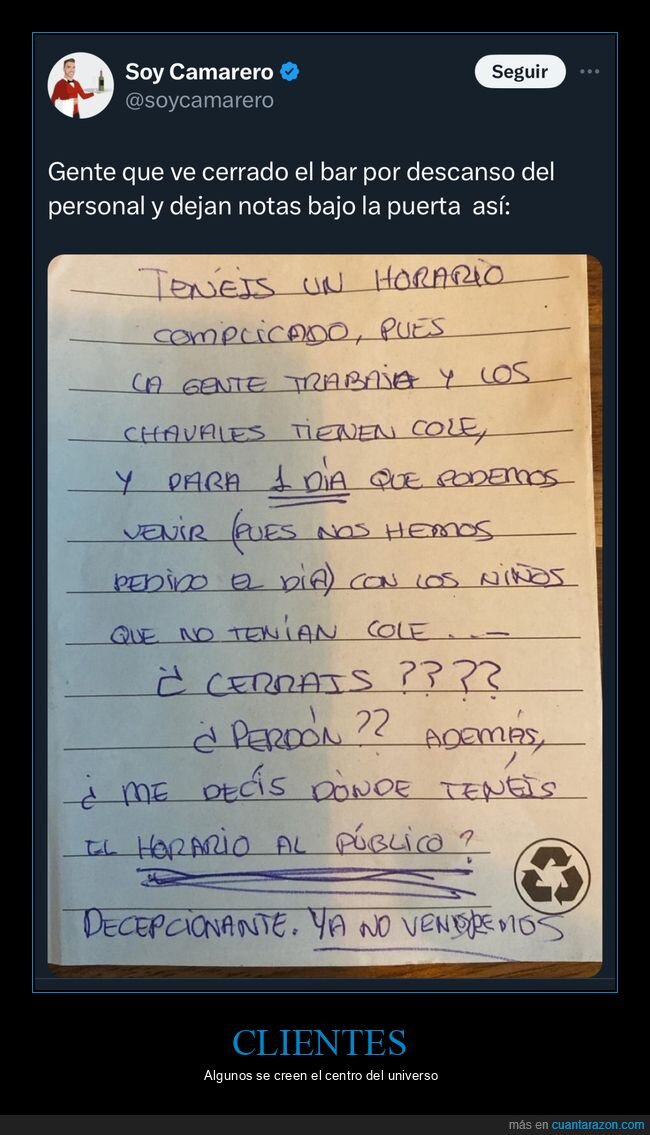 Soy Camarero
Seguir
@soycamarero
Gente que ve cerrado el bar por descanso del
personal y dejan notas bajo la puerta así:
TENÉIS UN HORARIO
COMPLICADO, PUES
LA GENTE TRABAJA Y LOS
CHAVALES TIENEN COLE,
Y PARA 1 DÍA QUE PODEMOS
VENIR (PUES NOS HEMOS
PEDIDO EL DÍA) CON LOS NIÑOS
QUE NO TENÍAN COLE...-
¿ CERRAIS ????
¿ PERDÓN ?? ADEMÁS,
¿ ME DECÍS DÓNDE TENÉIS
EL HORARIO AL PÚBLICO ?
DECEPCIONANTE. YA NO VENDREMOS
CLIENTES
Algunos se creen el centro del universo
más en cuantarazon.com